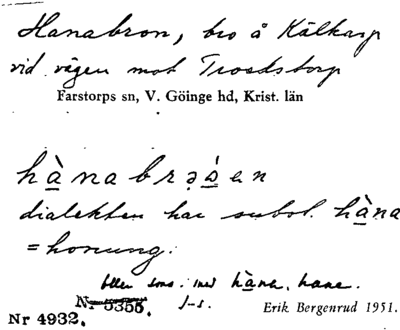 Hanabron, bro å Kälkarp
vid vägen mot Troedstorp
Farstorps sn, V. Göinge hd, Krist. län
hà̱nabrə̣s̀en
dialekten har subst. hà̱na
= honung.
eller sms. med hà̱na, hane.
Nr 5355. J-s.
Nr 4932. Erik Bergenrud 1951.